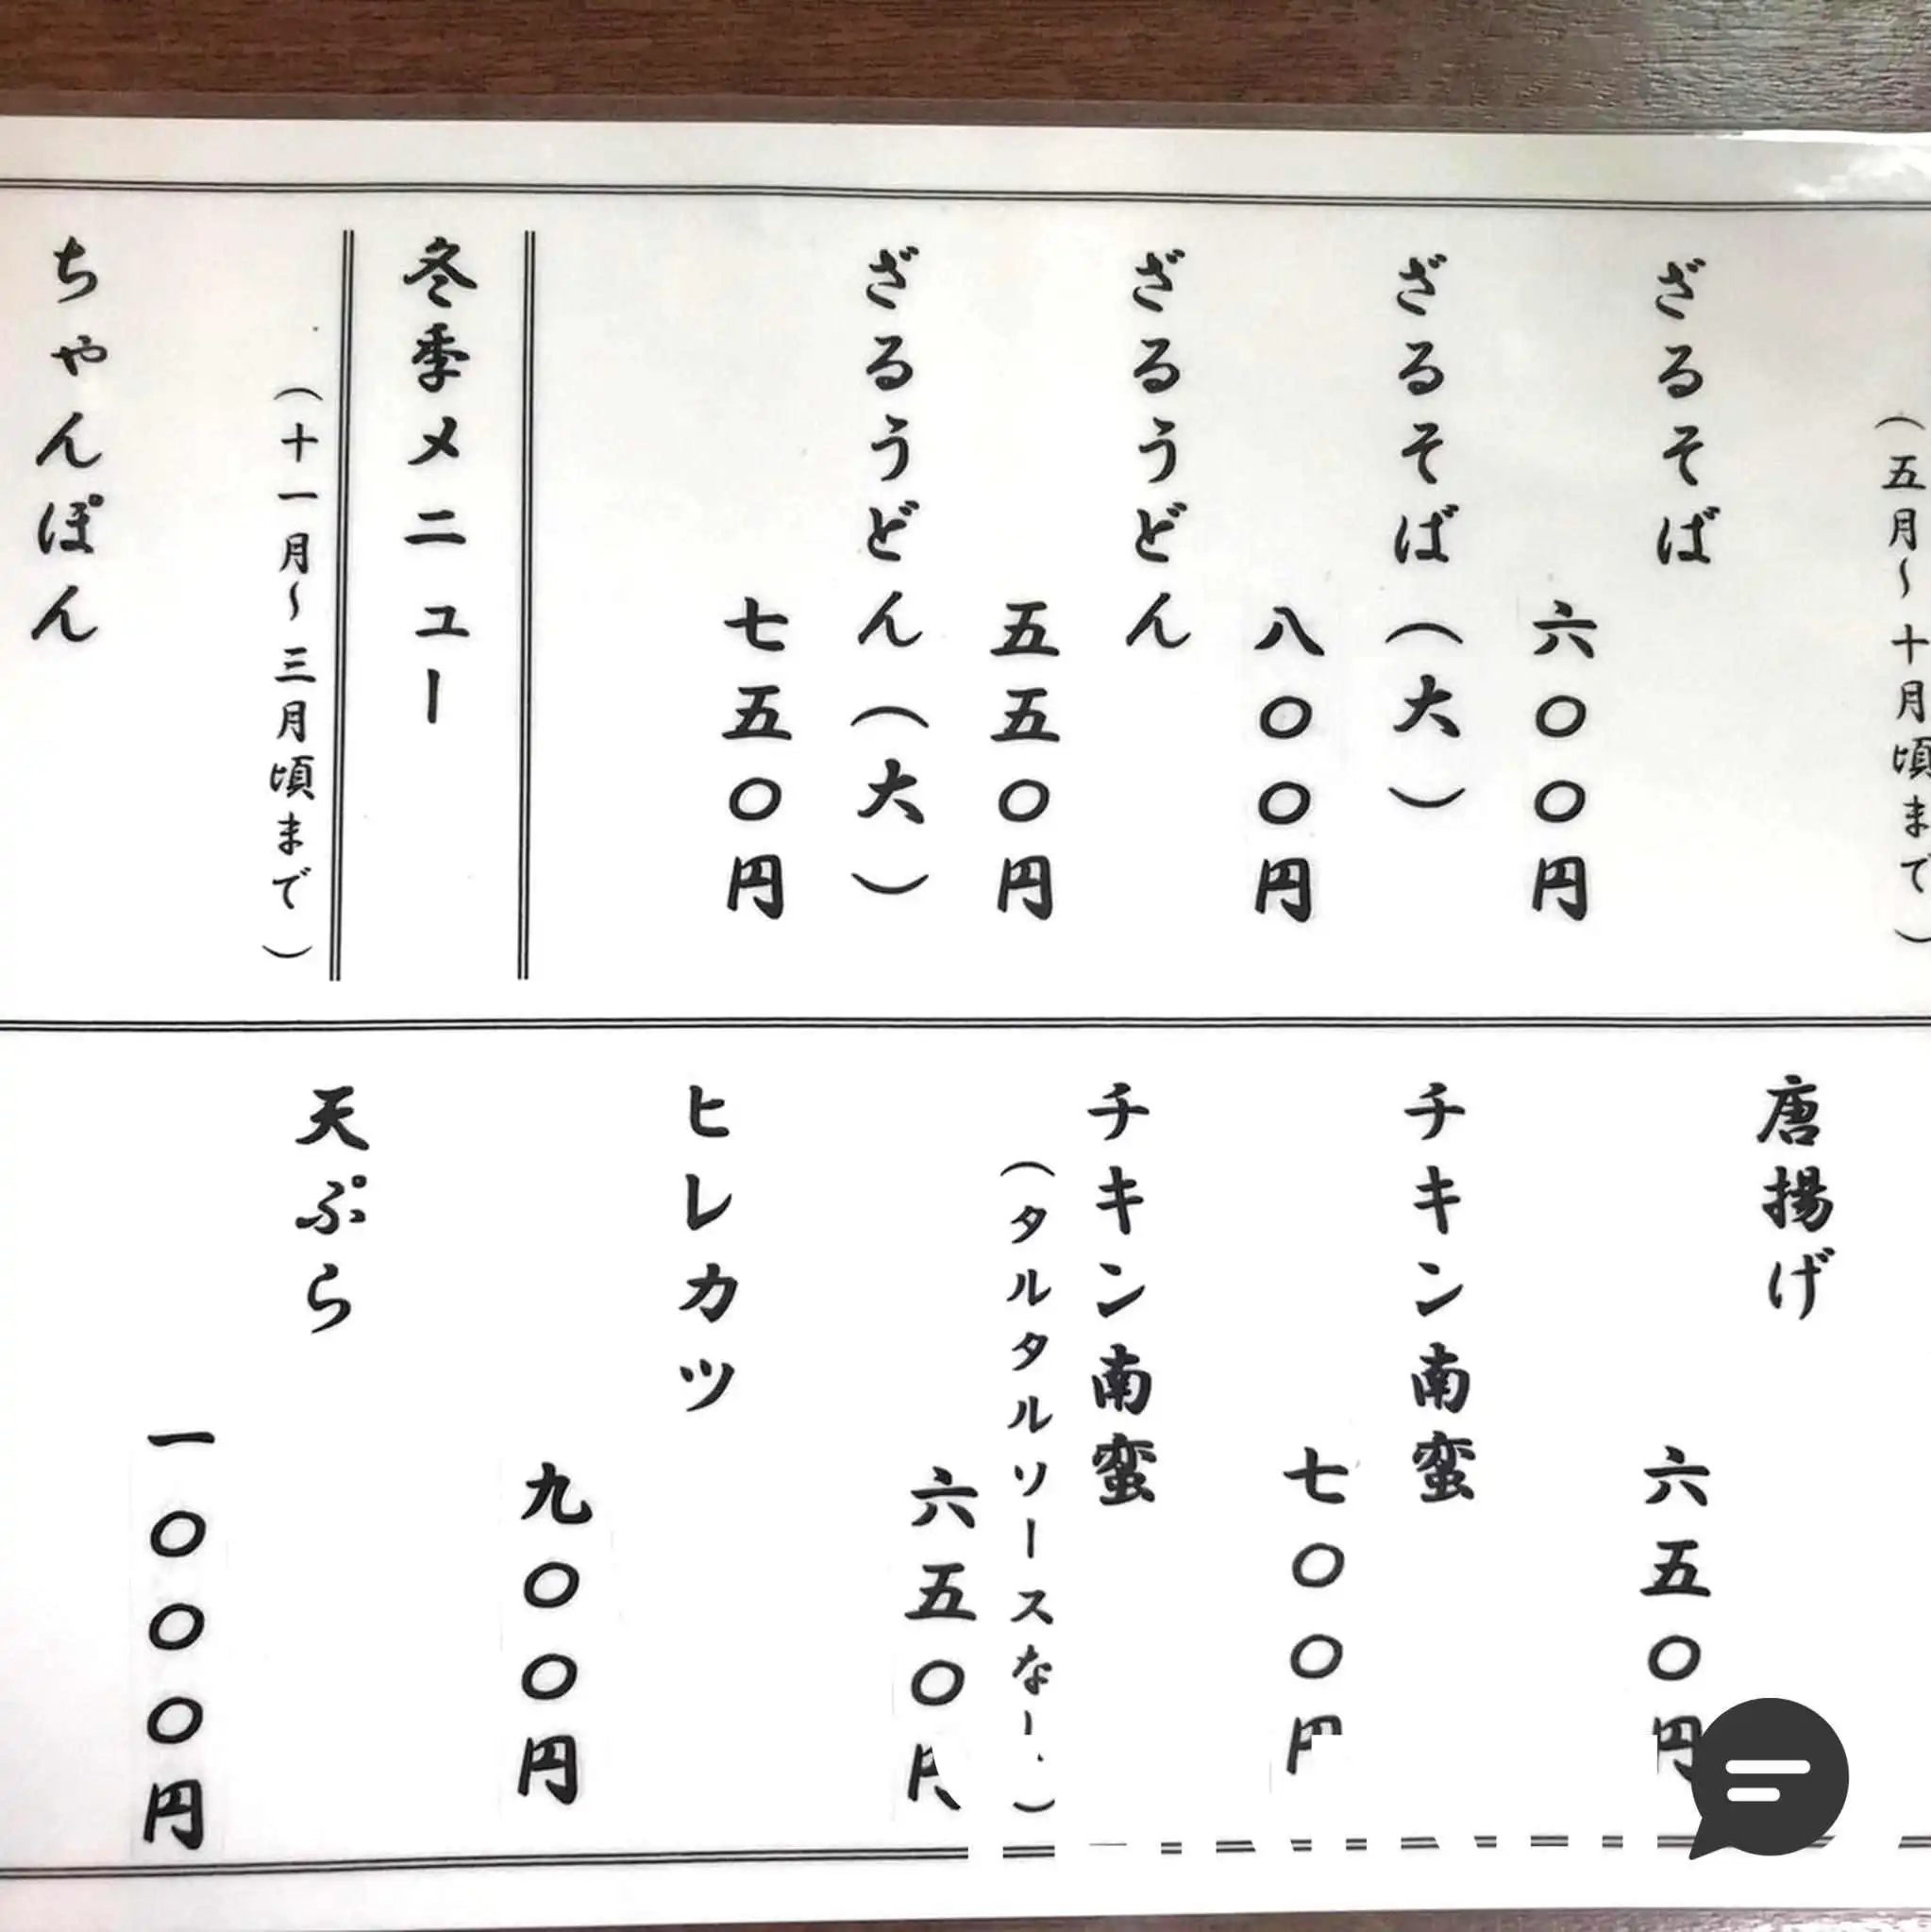 (五月〜十月頃まで)
ざるそば
六〇〇円
ざるそば(大)
八〇〇円
ざるうどん
五五〇円
ざるうどん(大)
七五〇円
冬季メニュー
(十一月〜三月頃まで)
ちゃんぽん
唐揚げ
六五〇円
チキン南蛮
七〇〇円
チキン南蛮
(タルタルソースなし)
六五〇円
ヒレカツ
九〇〇円
天ぷら
一〇〇〇円